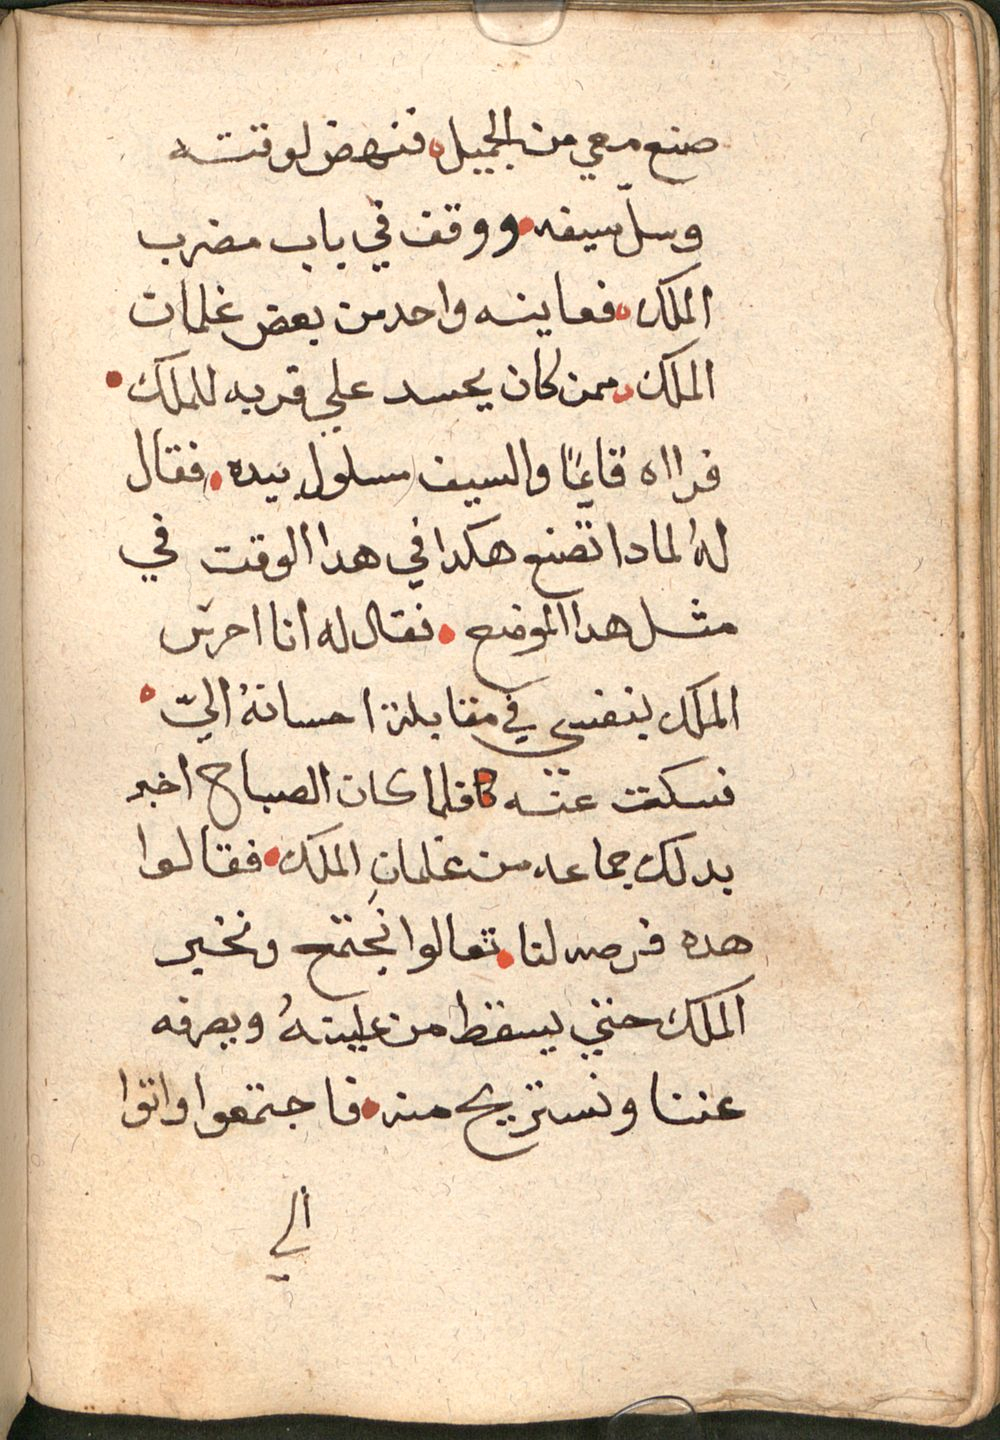 صنع معي من الجميل، فنهض لوقته
وسلّ سيفه، ووقف في باب مضرب
الملك، فعاينه واحد من بعض غلمان
الملك، ممن كان يحسد علي قربه للملك،
فرااه قايمًا والسيف مسلول بيده، فقال
لهُ لمادا تصنع هكدا في هدا الوقت في
مثل هدا الموضع، فقال له انا احرس
الملك بنفسي في مقابلة احسانهُ اليّ،
فسكت عنه فلما كان الصباح اخبر
بدلك جماعه من غلمان الملك، فقالوا
هده فرصه لنا، تعالوا نجتمع ونخبر
الملك حتي يسقط من عينهُ ويصرفه
عننا ونستريح منه، فاجتمعوا واتوا
الي